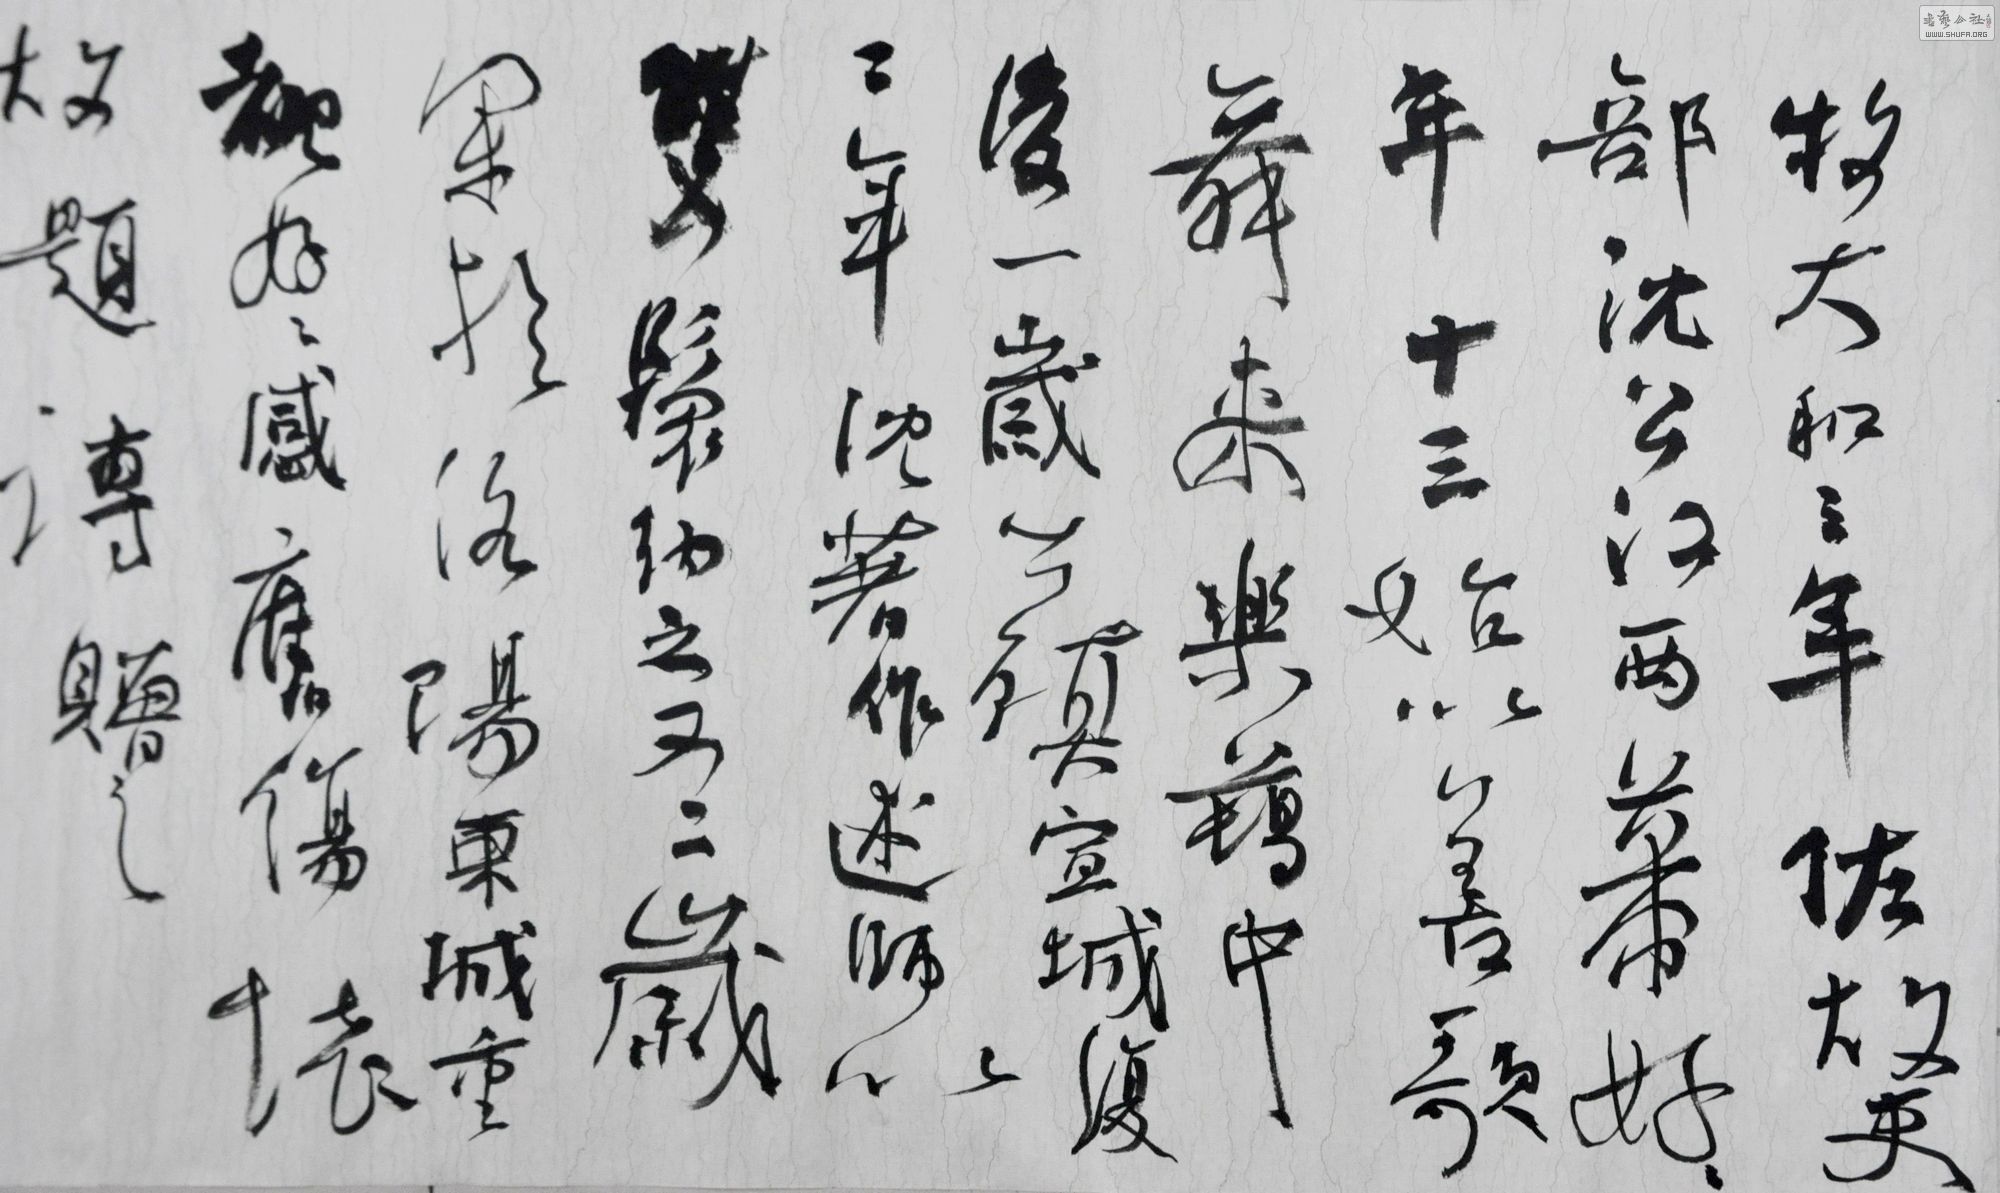 牧大和三年佐故吏
部沈公江西幕好〻
年十三始以善歌
舞来樂籍中
後一歲公鎮宣城復
二年沈著作述師以
雙鬟納之又二歲
於洛陽東城重
覩好〻感舊傷懷
故題詩贈之
書藝公社
WWW.SHUFA.ORG